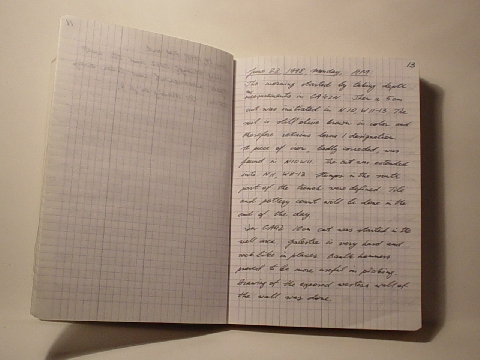 13
June 22, 1998, Monday, AM
The morning started by taking depth
measurements in CAG2N. Then a 5 cm
cut was initiated in N10, W11-13. The
soil is still olive brown in color and
therefore retains locus 1 designation.
A piece of iron, badly corroded, was
found in N10W11. The cut was extended
into N11, W11-13. in the south
part of the trench were defined. Tile
and pottery count will be done in the
end of the day.
In CAG2 10cm cut was started in the
well rock. is very hard and
rock like in places. hammers
proved to be more useful in picking.
Drawing of the exposed western wall of
the well was done.